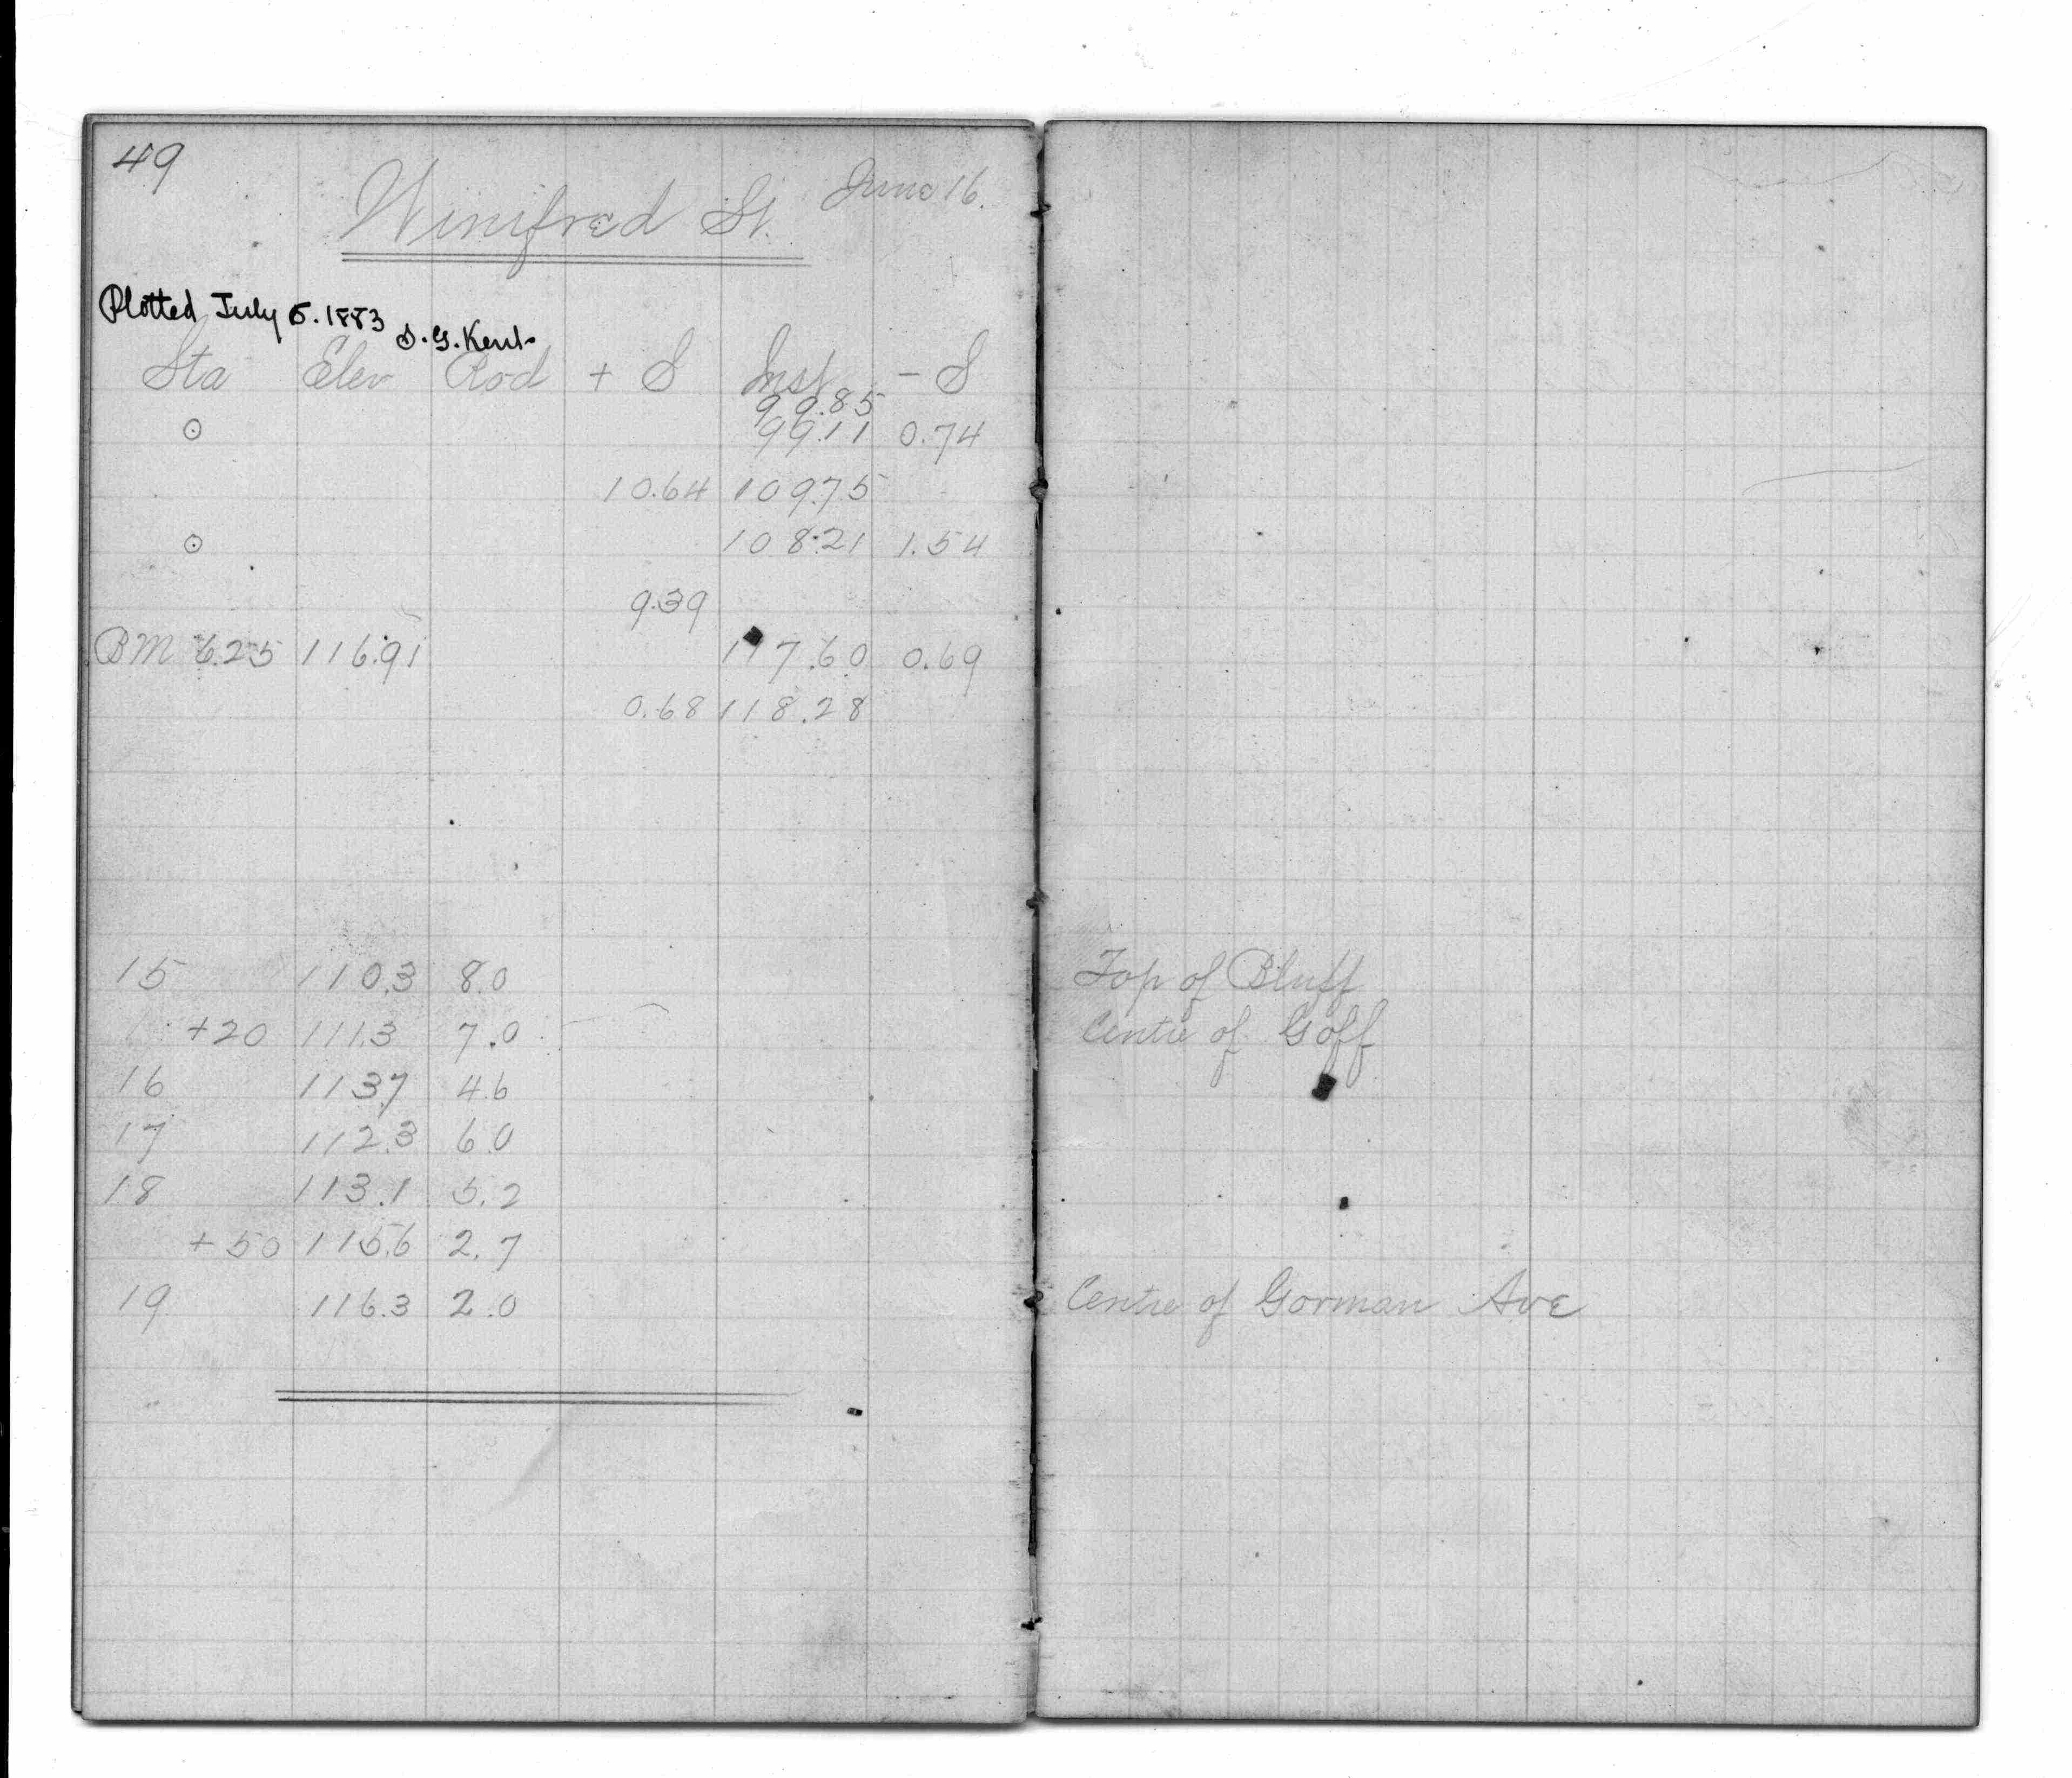 49
Winifred St. June 16.
Plotted July 5. 1883
S. G. Kent.
Sta Elev Rod + S Inst - S
99.85
⊙ 99.11 0.74
10.64 109.75
⊙ 108.21 1.54
9.39
BM 6.25 116.91 117.60 0.69
0.68 118.28
15 110.3 8.0 Top of Bluff
+20 111.3 7.0 Centre of Goff
16 113.7 4.6
17 112.3 6.0
18 113.1 5.2
+50 115.6 2.7
19 116.3 2.0 Centre of Gorman Ave